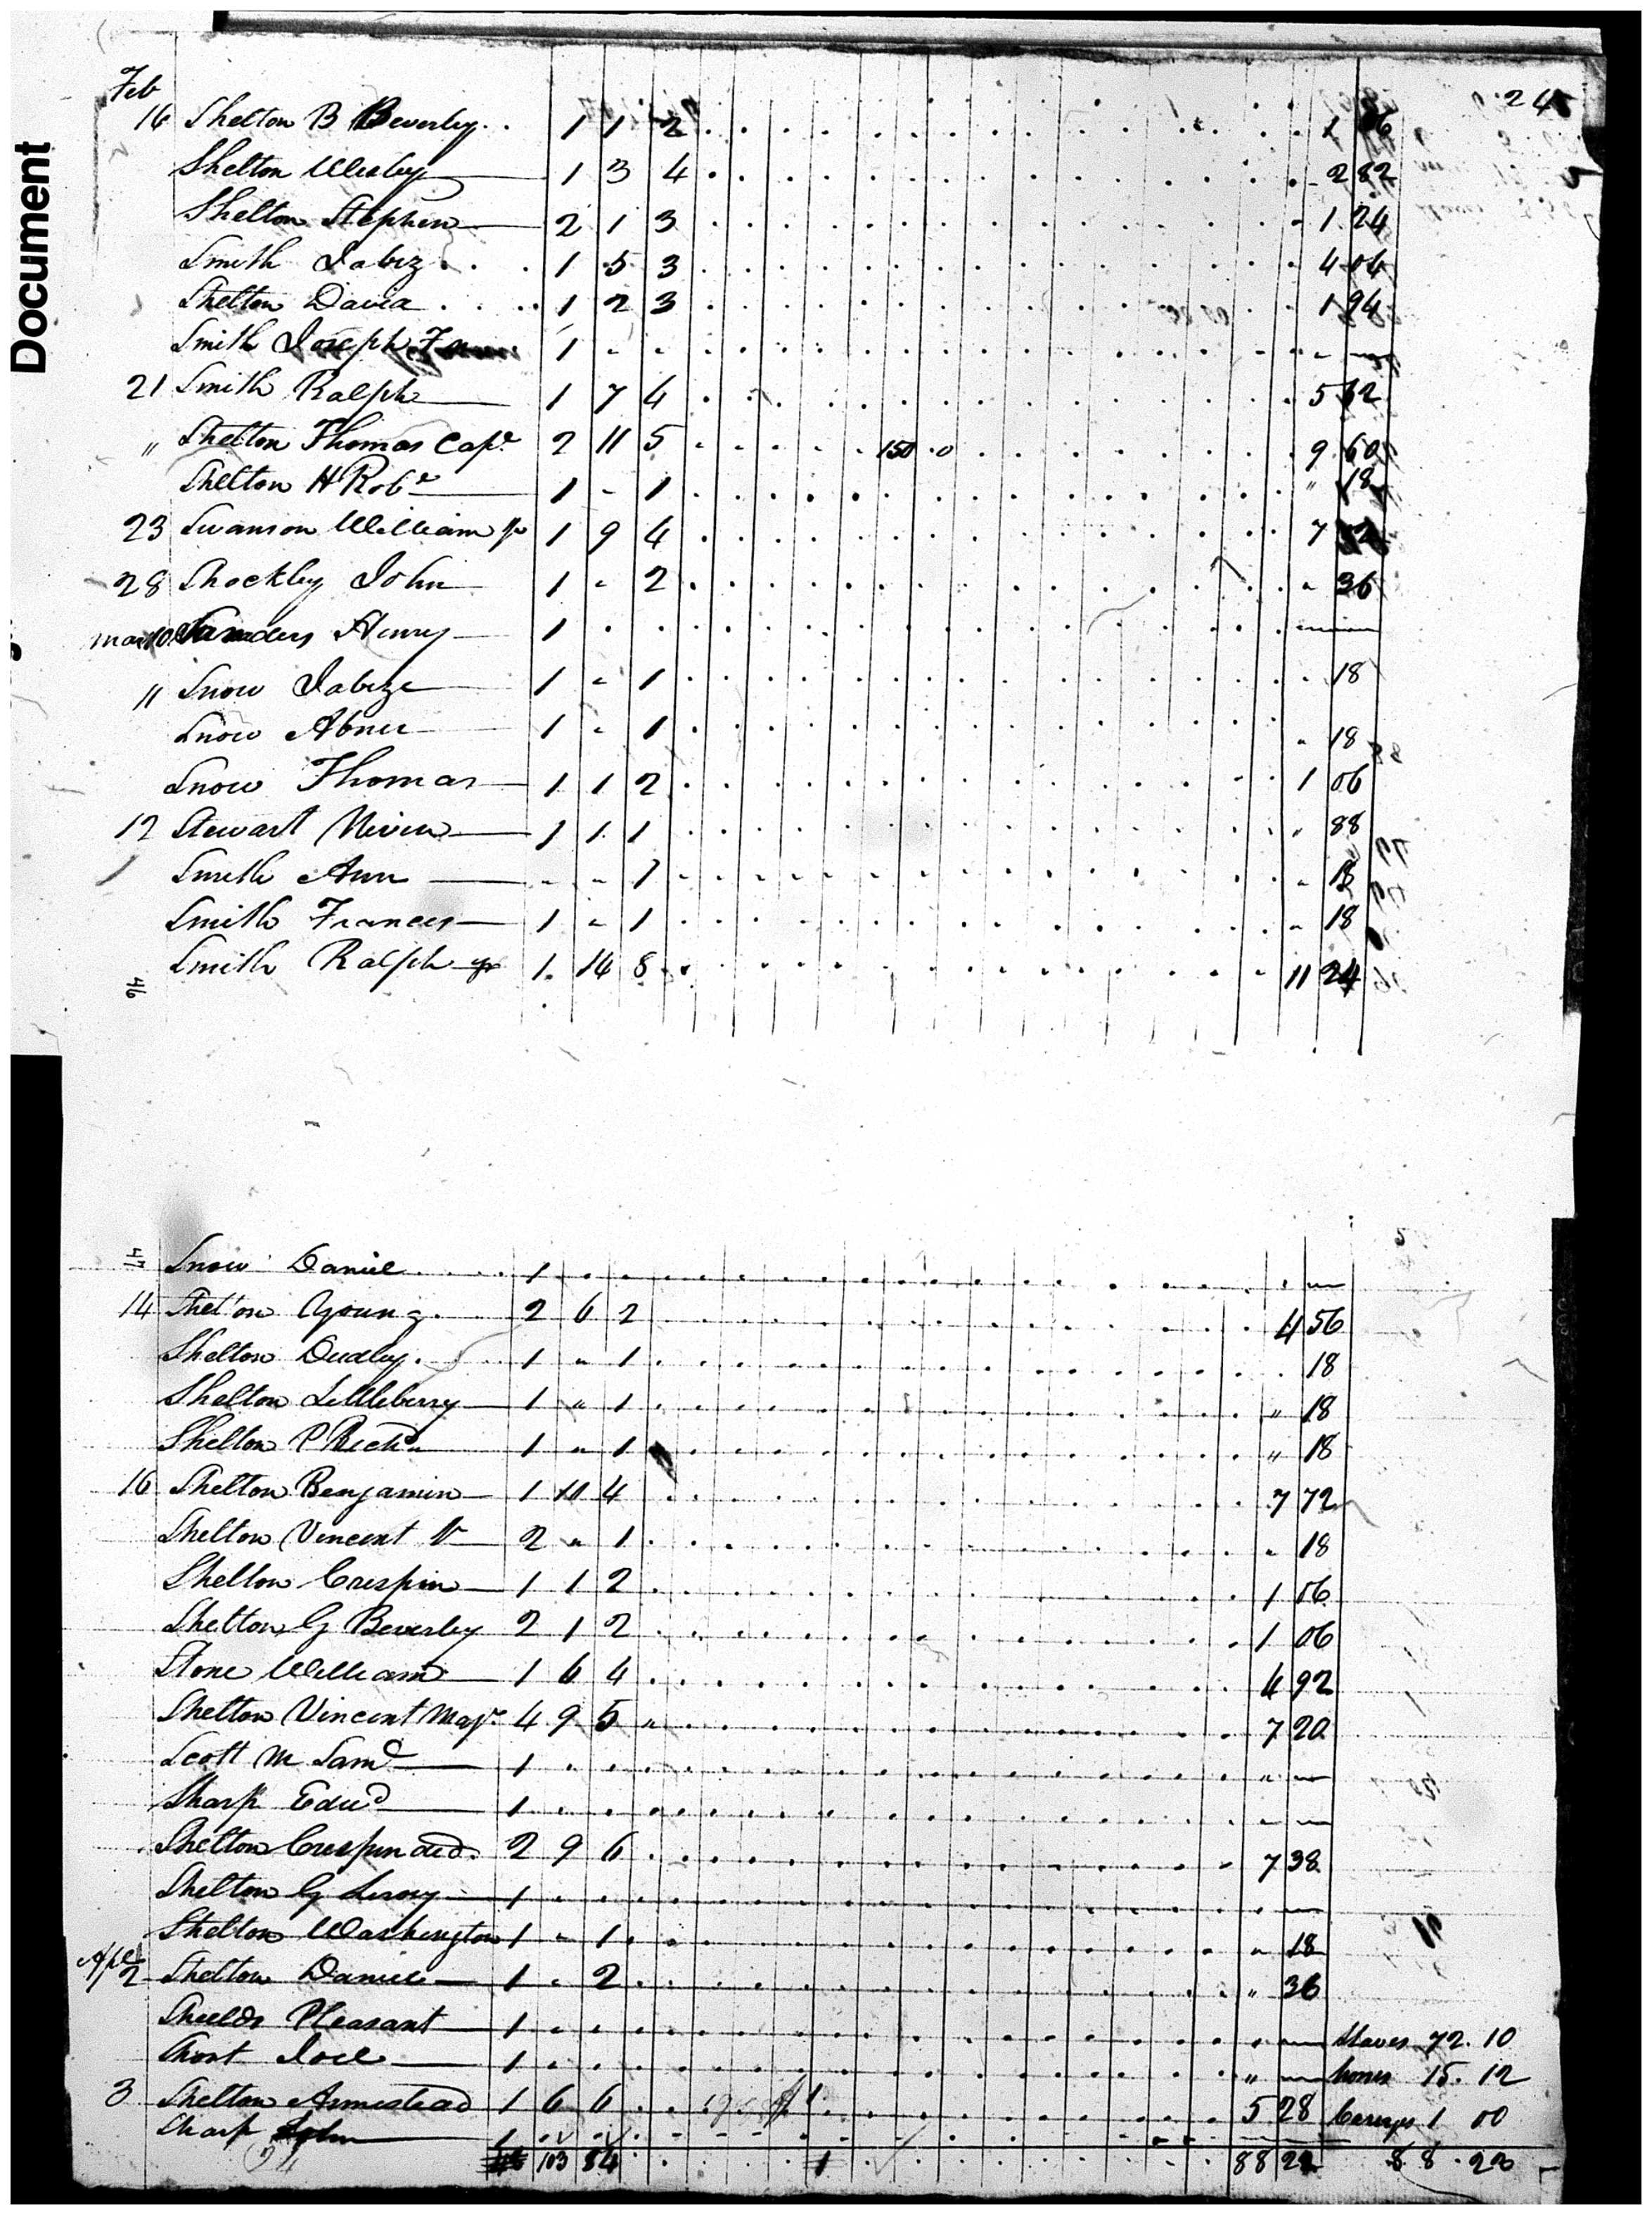 Document
24
Feb
16 Shelton B Beverley 1 1 2 1 06
Shelton Wesley 1 3 4 2 82
Shelton Stephen 2 1 3 1 24
Smith Jabez 1 5 3 4 04
Shelton David 1 2 3 1 94
Smith Joseph 1
21 Smith Ralph 1 7 4 5 62
" Shelton Thomas Capt 2 11 5 150 0 9 60
Shelton H Robt 1 - 1 " 18
23 Swanson William Jr 1 9 4 7
28 Shockley John 1 - 2 - 36
Mar 10 Sanders Henry 1
11 Snow Jabize 1 - 1 18
Snow Abner 1 - 1 - 18
Snow Thomas 1 1 2 1 06
12 Stewart Niven 1 1 1 " 88
Smith Ann - - 1 - 18
Smith Frances 1 - 1 - 18
46 Smith Ralph Jr 1 14 8 11 24
47 Snow Daniel 1
14 Shelton Young 2 6 2 4 56
Shelton Dudley 1 " 1 18
Shelton Littleberry 1 " 1 " 18
Shelton P Richd 1 " 1 " 18
16 Shelton Benjamin 1 10 4 7 72
Shelton Vincent Jr 2 " 1 " 18
Shelton Crespin 1 1 2 1 06
Shelton G Beverley 2 1 2 1 06
Stone William 1 6 4 4 92
Shelton Vincent Majr 4 9 5 7 20
Scott M Saml 1
Sharp Edwd 1
Shelton Crespin decd 2 9 6 7 38
Shelton G Leroy 1
Shelton Washington 1 - 1 " 18
Apl 2 Shelton Daniel 1 - 2 " 36
Shields Pleasant 1 Slaves 72.10
Short Joel 1 horses 15.12
3 Shelton Armistead 1 6 6 1 5 28 Carrages 1 00
Sharp John 1
103 84 1 88 22 88.22